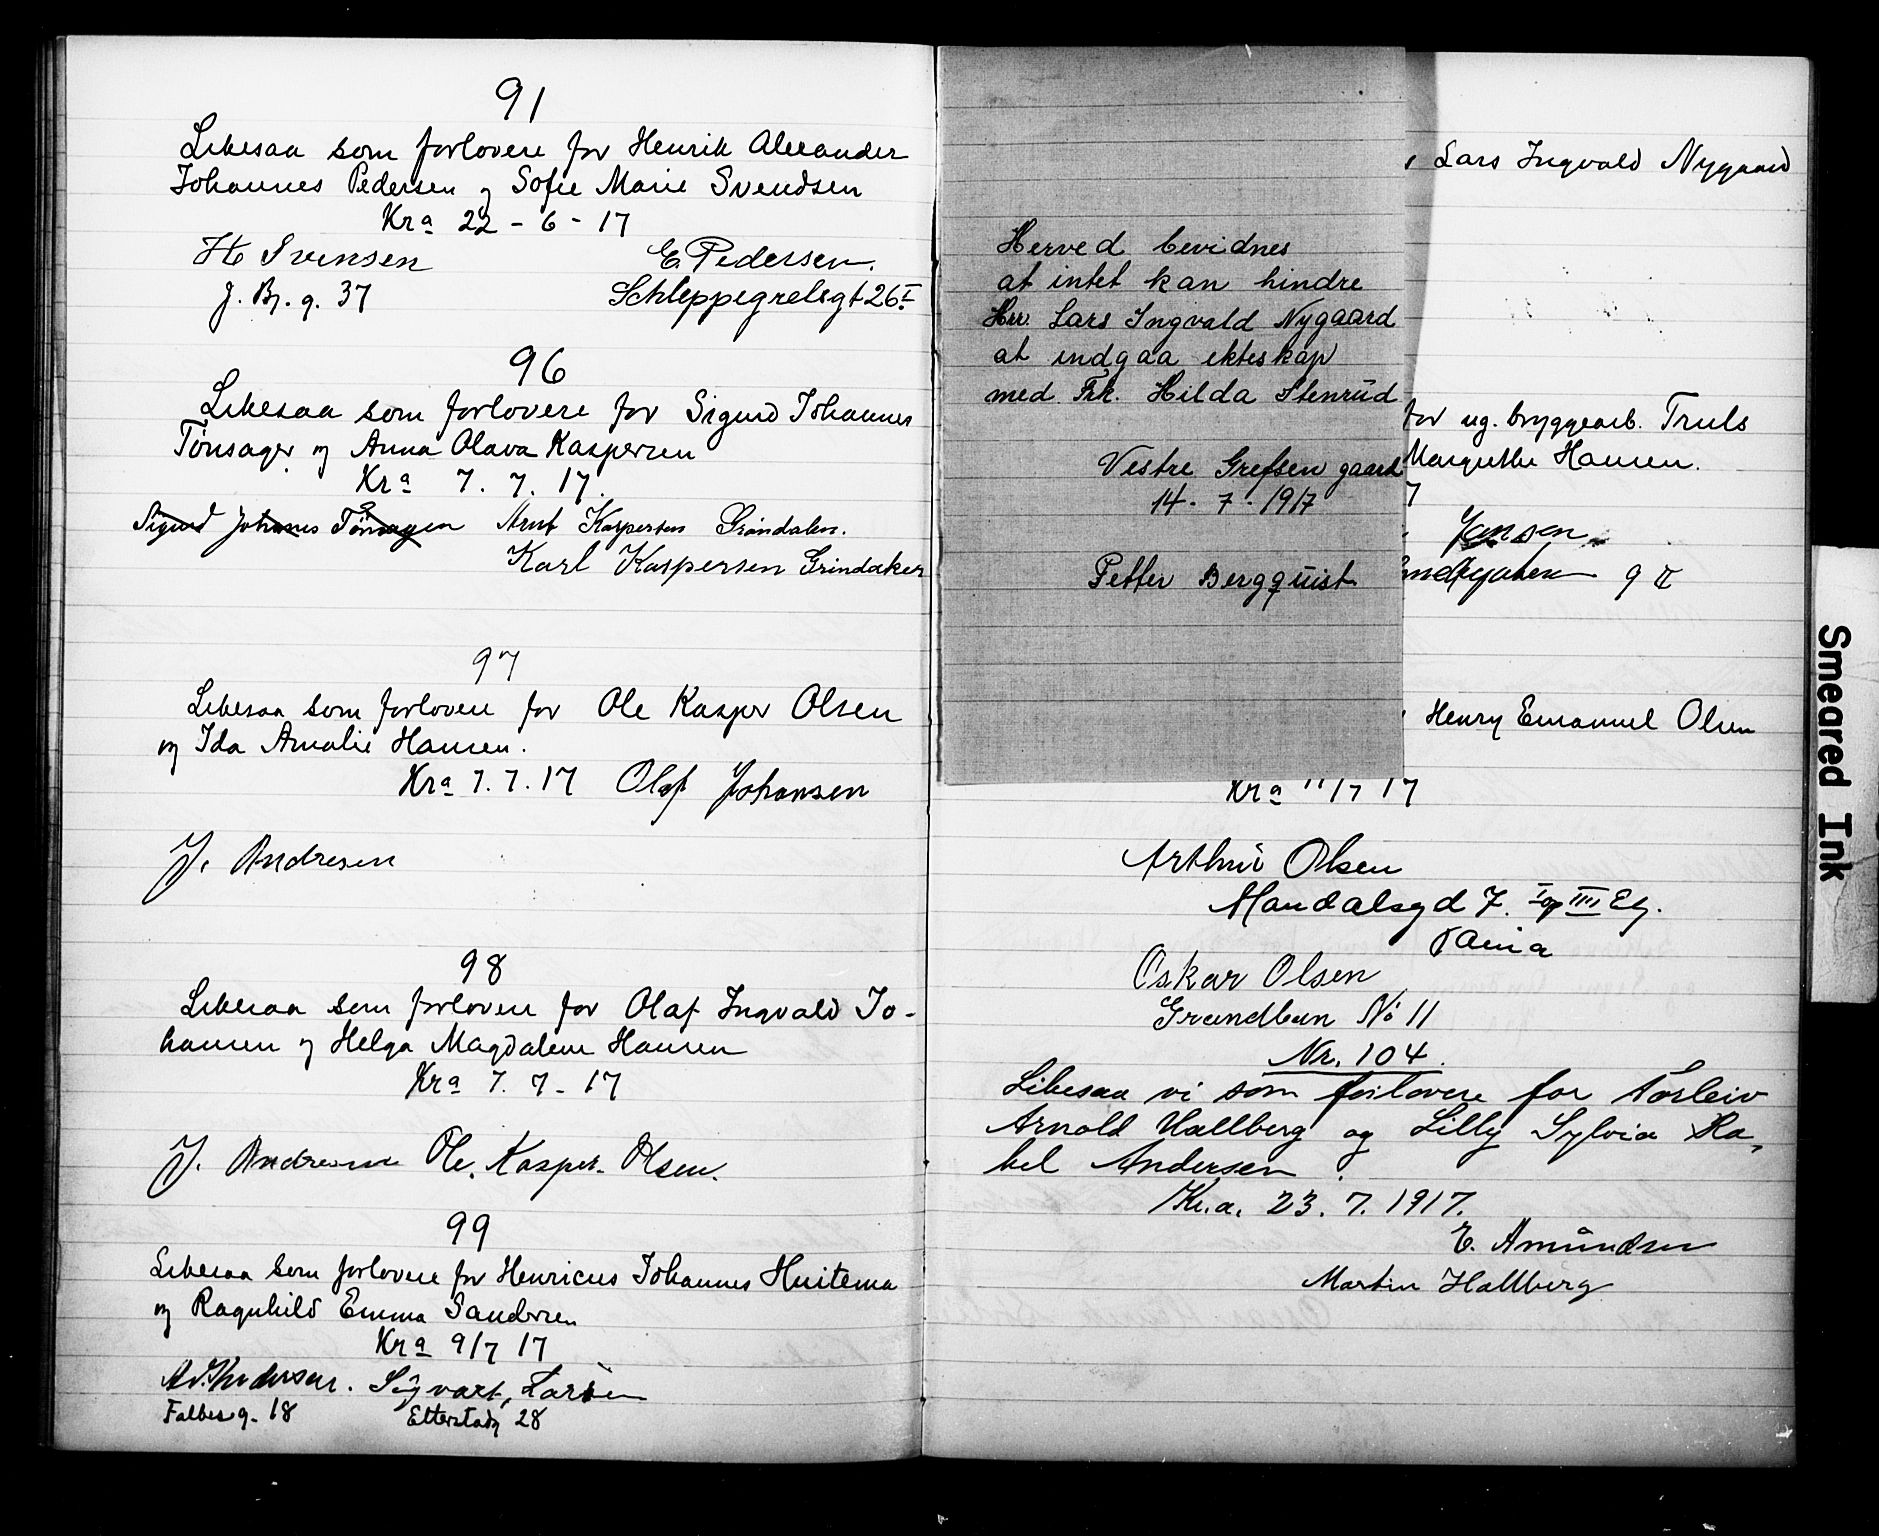 91
Likesaa som forlovere for Henrik Alexander
Johannes Pedersen og Sofie Marie Svendsen
Kra 22 - 6 - 17
H Svensen E. Pedersen.
J. Bj. g. 37 Schleppegrelsgt 26 I
96
Likesaa som forlovere for Sigurd Johannes
Tønsager og Anna Olava Kaspersen
Kra 7. 7. 17.
Sigurd Johanes Tønsagen Arnt Kaspersen Grøndalen.
Karl Kaspersen Grindaker
97
Likesaa som forlovere for Ole Kasper Olsen
og Ida Amalie Hansen.
Kra 7. 7. 17 Olaf Johansen
J. Andresen
98
Likesaa som forlovere for Olaf Ingvald Jo-
hansen og Helga Magdalene Hansen
Kra 7. 7 - 17
J. Andresen Ole. Kasper. Olsen.
99
Likesaa som forlovere for Henricus Johannes Huitema
og Ragnhild Emma Sandersen
Kra 9/7 17
A. Andersen. Sigvart, Larsen
Falbesg. 18 Etterstadg 28
Lars Ingvald Nygaard
Herved bevidnes
at intet kan hindre
Hrr. Lars Ingvald Nygaard
at indgaa ekteskap
med Frk. Hilda Stenrud
Vestre Grefsen gaard
14 - 7 - 1917
Petter Bergquist
for ug. bryggearb. Truls
Margrethe Hansen.
7
Jensen
9 II
Henry Emanuel Olsen
Kra 11/7 17
Arthur Olsen
Mandalsgd 7. I op III Eg.
Oskar Olsen
No 11
Nr. 104.
Likesaa vi som forlovere for Torleiv
Arnold Hallberg og Lilly Sylvia Ra-
kel Andersen.
Kr.a. 23. 7. 1917.
E. Amundsen
Martin Hallberg
Smeared Ink